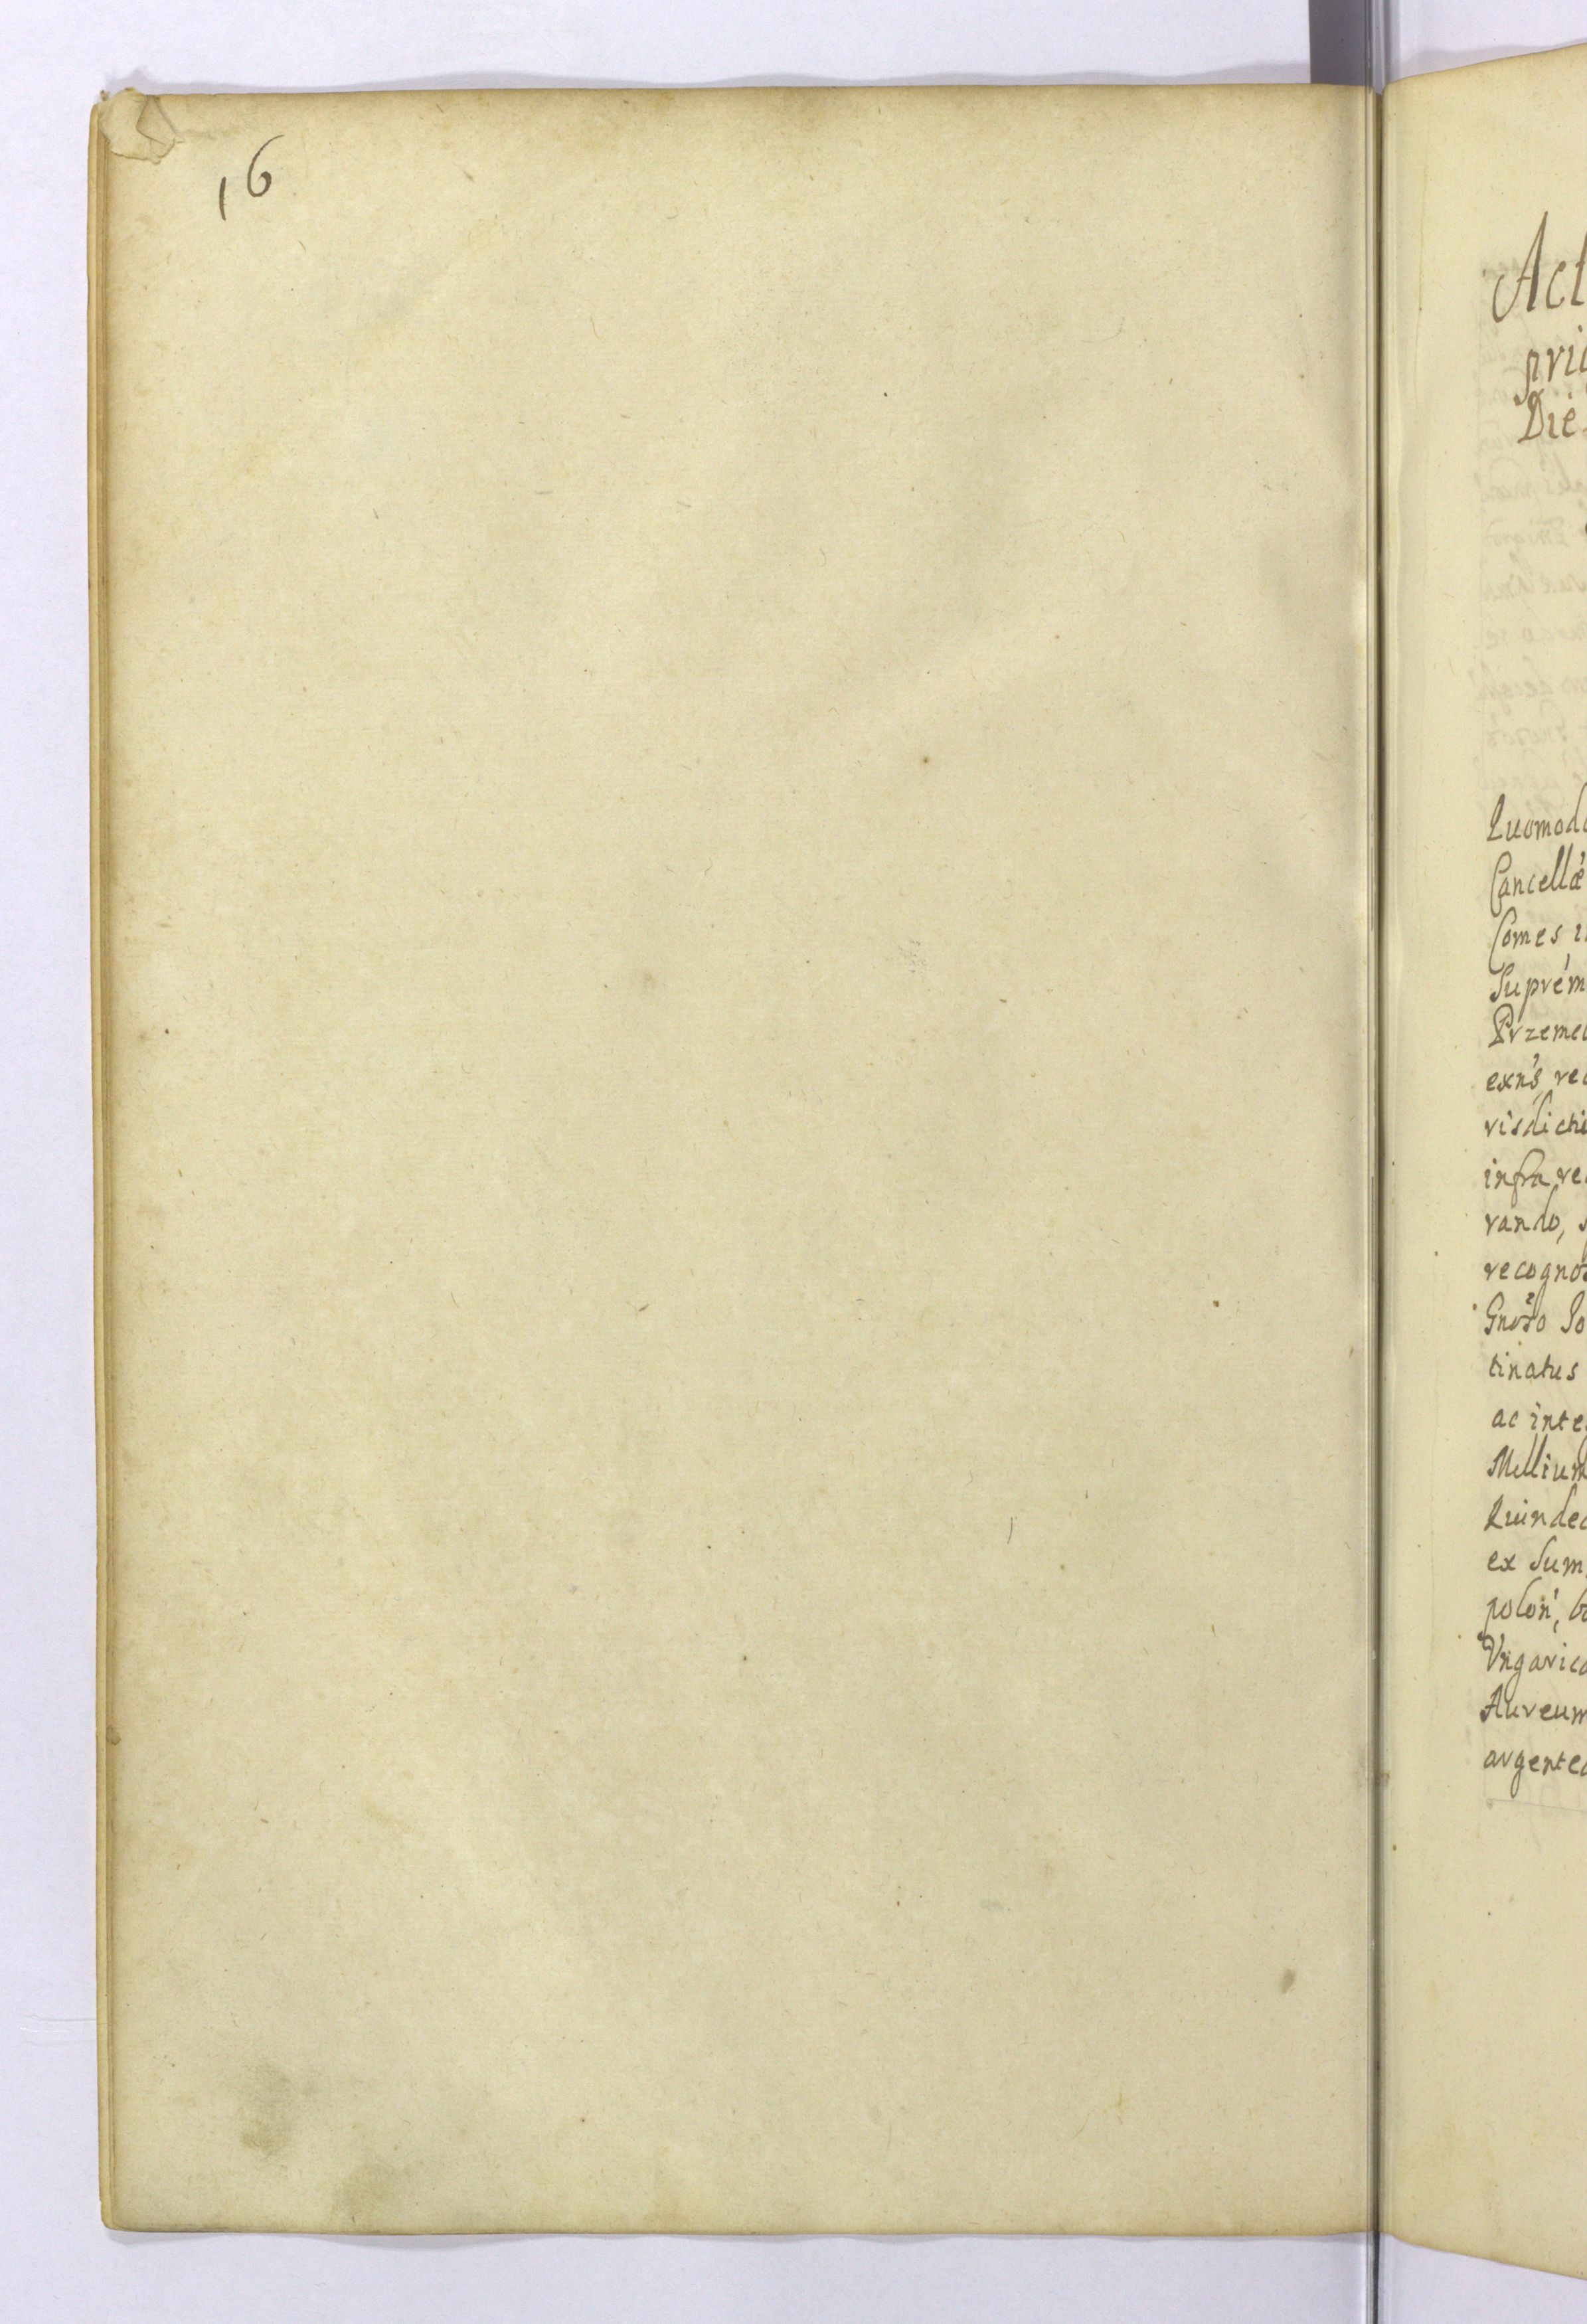 16
Act
Die
Quomodo
Cancellæ
Comes
Suprem
Przeme
exn's rec
risdicti
infra re
rando,
recognos
Gnoso Jo
tinatus
ac inte
Millium
Quindec
ex Sum
polon',
Vngarica
Aureum
argente